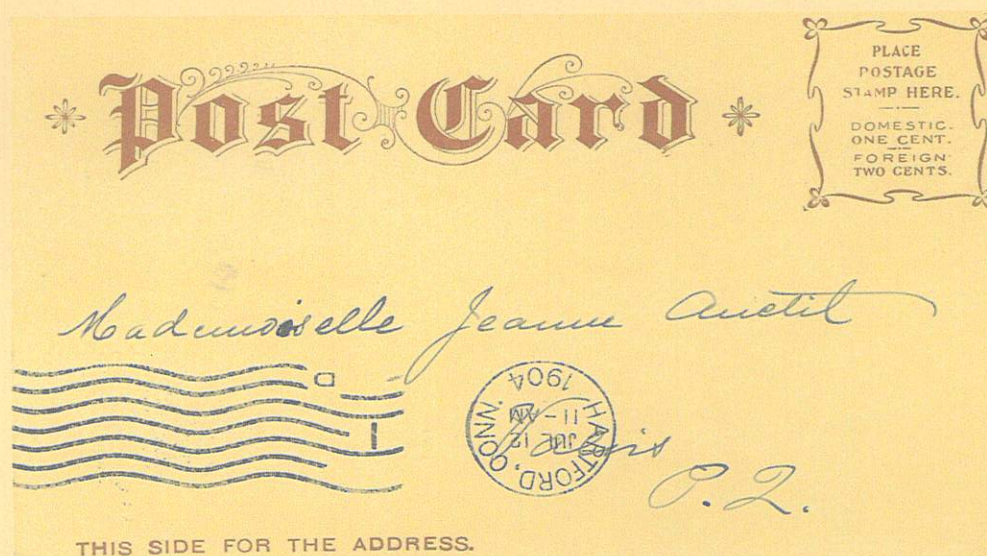 Post Card
PLACE
POSTAGE
STAMP HERE.
DOMESTIC.
ONE CENT.
FOREIGN
TWO CENTS.
Mademoiselle Jeanne Auctil
D
1
HARTFORD, CONN.
JUL 12
11-AM
1904
P. Q.
THIS SIDE FOR THE ADDRESS.